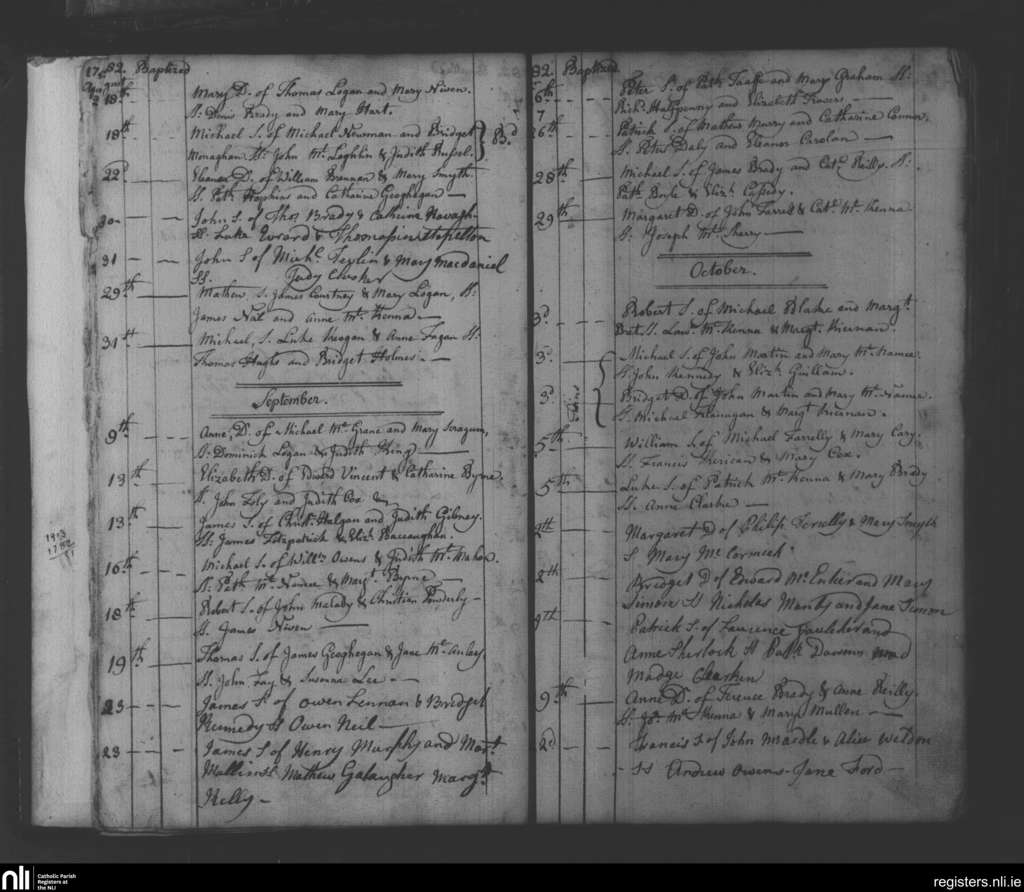 1782. Baptized
August
18th Mary D. of Thomas Logan and Mary Niven.
S. Denis Brady and Mary Hart.
18th Michael S. of Michael Newman and Bridget
Monaghan. Ss. John Mc. Loghlin & Judith Russel. } Bd.
22d. Eleanor D. of William Brennan & Mary Smyth.
Ss. Patk. Hopkins and Catharine Geoghegan —
20 — John S. of Thos. Brady & Catherine
Ss. Luke Evrard & Thomasin Stapelton
31 — John S of Michl. Teylin & Mary macdaniel
SS. Judy Clusker
29th — Mathew, S. James Courtney & Mary Logan, Ss.
James Nal and Anne Mc. Kenna —
31st — Michael, S. Luke Keogan & Anne Fagan Ss.
Thomas Hughs and Bridget Holmes. —
September.
9th. Anne, D. of Michael Mc. Grane and Mary
S. Dominick Logan & Judith King —
13th Elizabeth D. of Edward Vincent & Catharine Byrne.
Ss. John Foly and Judith Cox
13th James S. of Christr. Halgan and Judith Gibney.
Ss. James Fitzpatrick & Elizh.
16th Michael S. of Willm. Owens & Judith Mc. Mahon.
Ss. Patk. Mc. Namee & Margt. Byrne —
18th Robert S. of John Malady & Christian Ponderly —
Ss. James Niven —
19th Thomas S. of James Geoghegan & Jane Mc. Auley.
Ss. John Fay & Susanna Lee —
23 — James S. of Owen Lennan & Bridget
Kennedy Ss Owen Neil —
23 — James S of Henry Murphy and Margt
Mathew Galaugher Margt
Kelly —
1813
1782
31
82. Baptized.
6th Peter S. of Patk. Taaffe and Mary Graham Ss.
Richd. Halfpenny and Elizabeth Travers —
7
26th Patrick S. of Mathew Murry and Catharine Connor.
S. Peter Daly and Eleanor Carolan —
28th Michael S. of James Brady and Cate. Reilly. Ss.
Patk. Doyle & Elizh. Cassidy.
29th Margaret D. of John Farrell & Cate. Mc. Kenna
S. Joseph Mc. Sherry —
October.
3d. Robert S. of Michael Blake and Margt.
Ss. Lawe. Mc. Kenna & Margt. Kiernan.
3d. Michael S. of John Martin and Mary Mc. Namee.
S. John Kennedy & Elizh. Quillam.
Twins
3d. Bridget D. of John Martin and Mary Mc. Namee.
S. Michael Flanagan & Margt Kiernan.
5th William S. of Michael Farrelly & Mary Cary.
Ss. Francis & Mary Cox.
5th Luke S. of Patrick Mc. Kenna & Mary Brady
Ss. Anne Clarke —
Margaret D of Philip Ferrelly & Mary Smyth
S Mary McCormick.
Bridget D of Edward McEnter and Mary
Simon Ss Nicholas and Jane Simon
9th Patrick S. of Laurence Faulder and
Anne Sherlock Ss Patk Dawson and
Madge
9th. Anne D. of Terence Brady & Anne Reilly.
Ss. Mc. Kenna & Mary Mullen —
Francis S of John Mardle & Alice Weldon
SS Andrew Owens. Jane Ford —
nli
Catholic Parish
Registers at
the NLI
registers.nli.ie